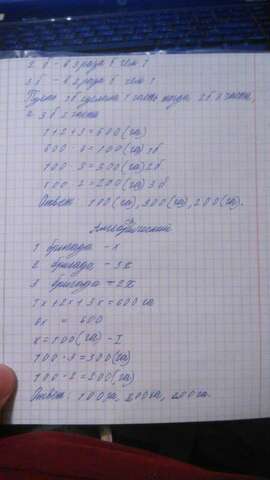 2 б - в 3 раза б чем 1
3 б - в 2 раза б чем 1
Пусть 1б сделала 1 часть тогда 2б 3 части,
а 3 б 2 части
1+2+3=600(га)
600 : 6=100(га) 1б
100 · 3=300(га) 2б
100 · 2=200(га) 3б
Ответ: 100(га), 300(га), 200(га).
Алгебраический
1 бригада - x
2 бригада - 3x
3 бригада - 2x
1x+2x+3x=600га
6x = 600
x=100(га) - I
100 · 3=300(га)
100 · 2=200(га)
Ответ: 100га, 300га, 200га.